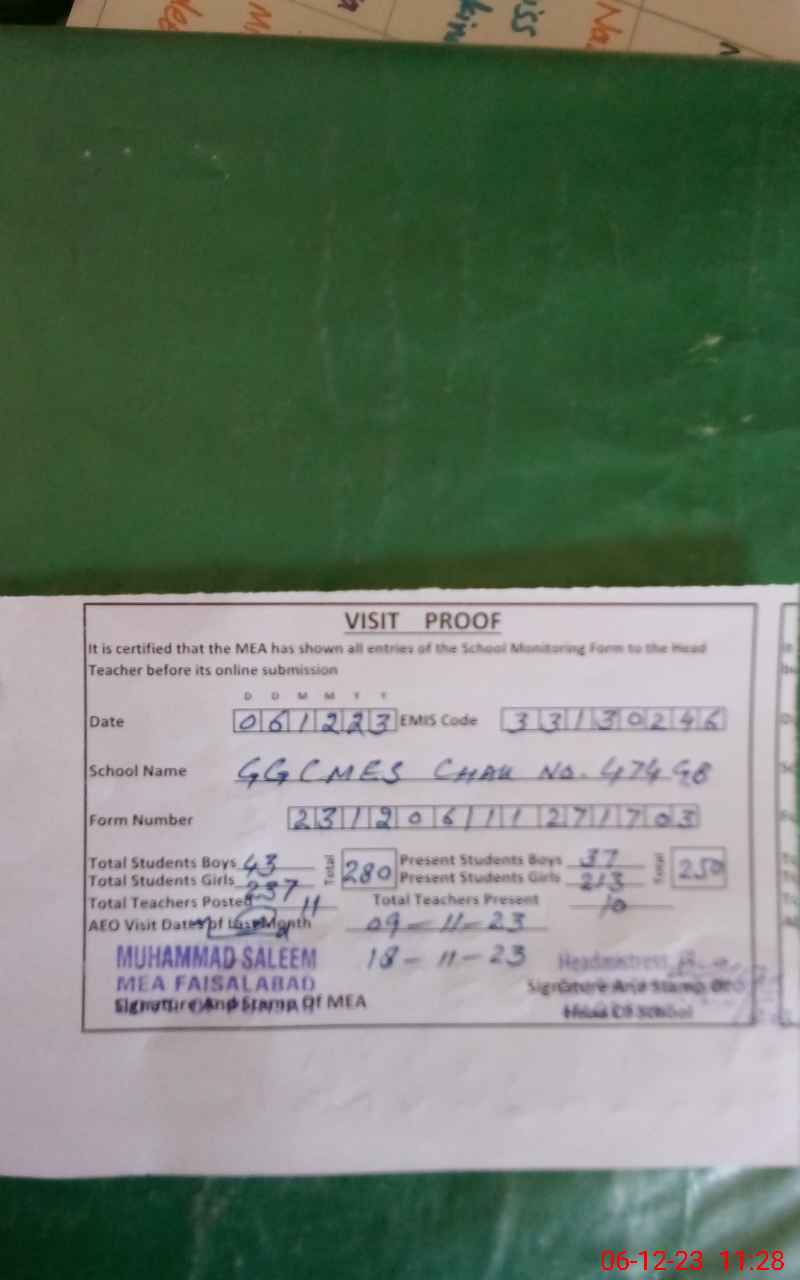 iss
Na.
VISIT PROOF
It is certified that the MEA has shown all entries of the School Monitoring Form to the Head
Teacher before its online submission
D D M M Y Y
Date 061223 EMIS Code 33130246
School Name GGCMES CHAK NO. 474 GB
Form Number 2312061127 1703
Total Students Boys 43 Total 280 Present Students Boys 37 Total 250
Total Students Girls 237 Present Students Girls 213
Total Teachers Posted 11 Total Teachers Present 10
AEO Visit Dates of Last Month 09-11-23
18-11-23
MUHAMMAD SALEEM
MEA FAISALABAD
Headmistress
Signature And Stamp Of MEA
Signature And Stamp Of
Head Of School
06-12-23 11:28